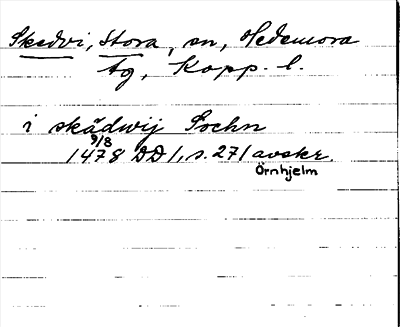 Skedvi, Stora, sn, Hedemora
tg, Kopp. l.
i skådwij Sochn
9/8
1478 DD 1, s. 271 avskr.
Örnhjelm